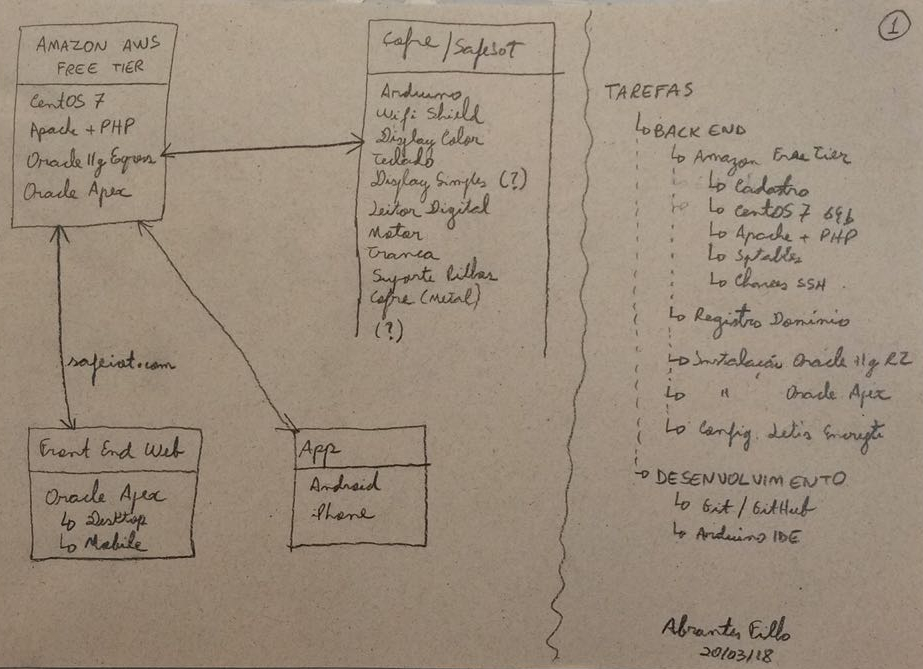 AMAZON AWS
FREE TIER
CentOS 7
Apache + PHP
Oracle 11g Express
Oracle Apex
Cofre / SafeIoT
Arduino
Wifi Shield
Display Color
Teclado
Display Simples (?)
Leitor Digital
Motor
Tranca
Suporte Pilhas
Cofre (Metal)
(?)
safeiot.com
Front End Web
Oracle Apex
↳ Desktop
↳ Mobile
App
Android
iPhone
1
TAREFAS
↳ BACK END
↳ Amazon Free Tier
↳ Cadastro
↳ CentOS 7 64b
↳ Apache + PHP
↳ Iptables
↳ Chaves SSH
↳ Registro Domínio
↳ Instalação Oracle 11g R2
↳ " Oracle Apex
↳ Config. Let's Encrypt
↳ DESENVOLVIMENTO
↳ Git / GitHub
↳ Arduino IDE
Abrantes Filho
20/03/18